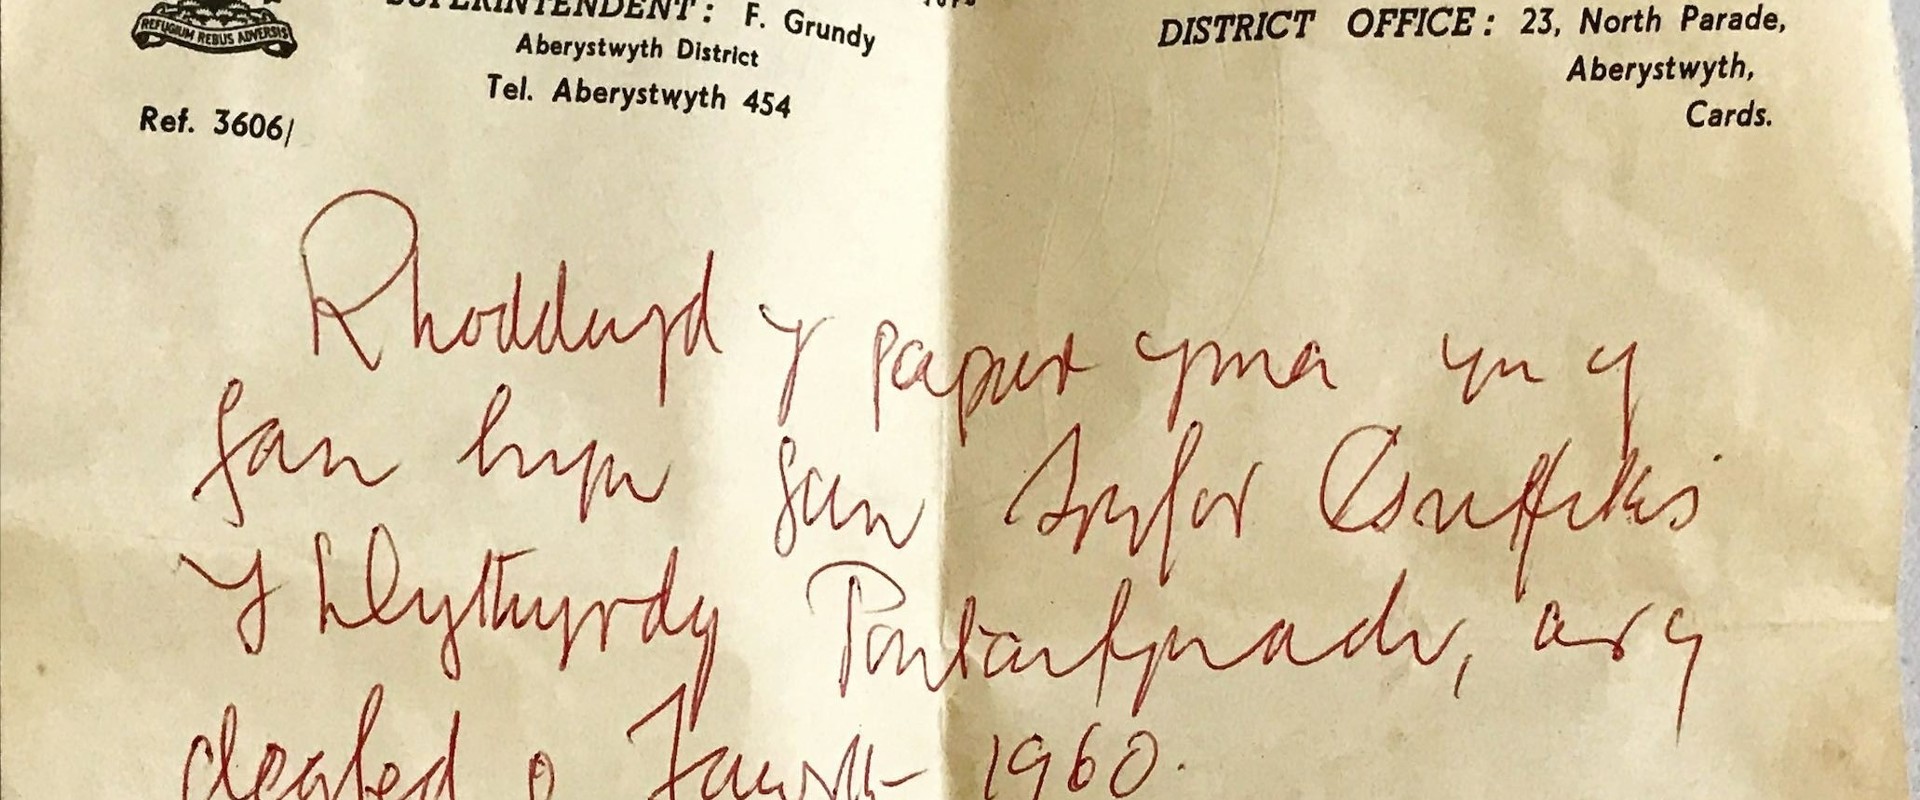 REFUGIUM REBUS ADVERSIS
SUPERINTENDENT: F. Grundy
Aberystwyth District
Tel. Aberystwyth 454
Ref. 3606/
DISTRICT OFFICE: 23, North Parade,
Aberystwyth,
Cards.
Rhoddwyd y papur yma yn y
fan hyn gan Trefor Griffiths
Y Llythyrdy Pontarfynach, ar y
degfed o Fawrth 1960.